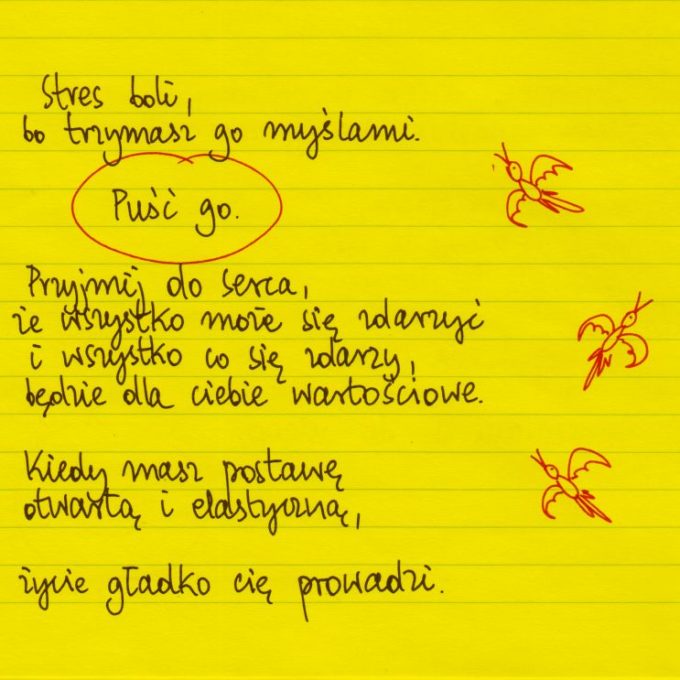 Stres boli,
bo trzymasz go myślami.
Puść go.
Przyjmij do serca,
że wszystko może się zdarzyć
i wszystko co się zdarzy,
będzie dla ciebie wartościowe.
Kiedy masz postawę
otwartą i elastyczną,
życie gładko cię prowadzi.